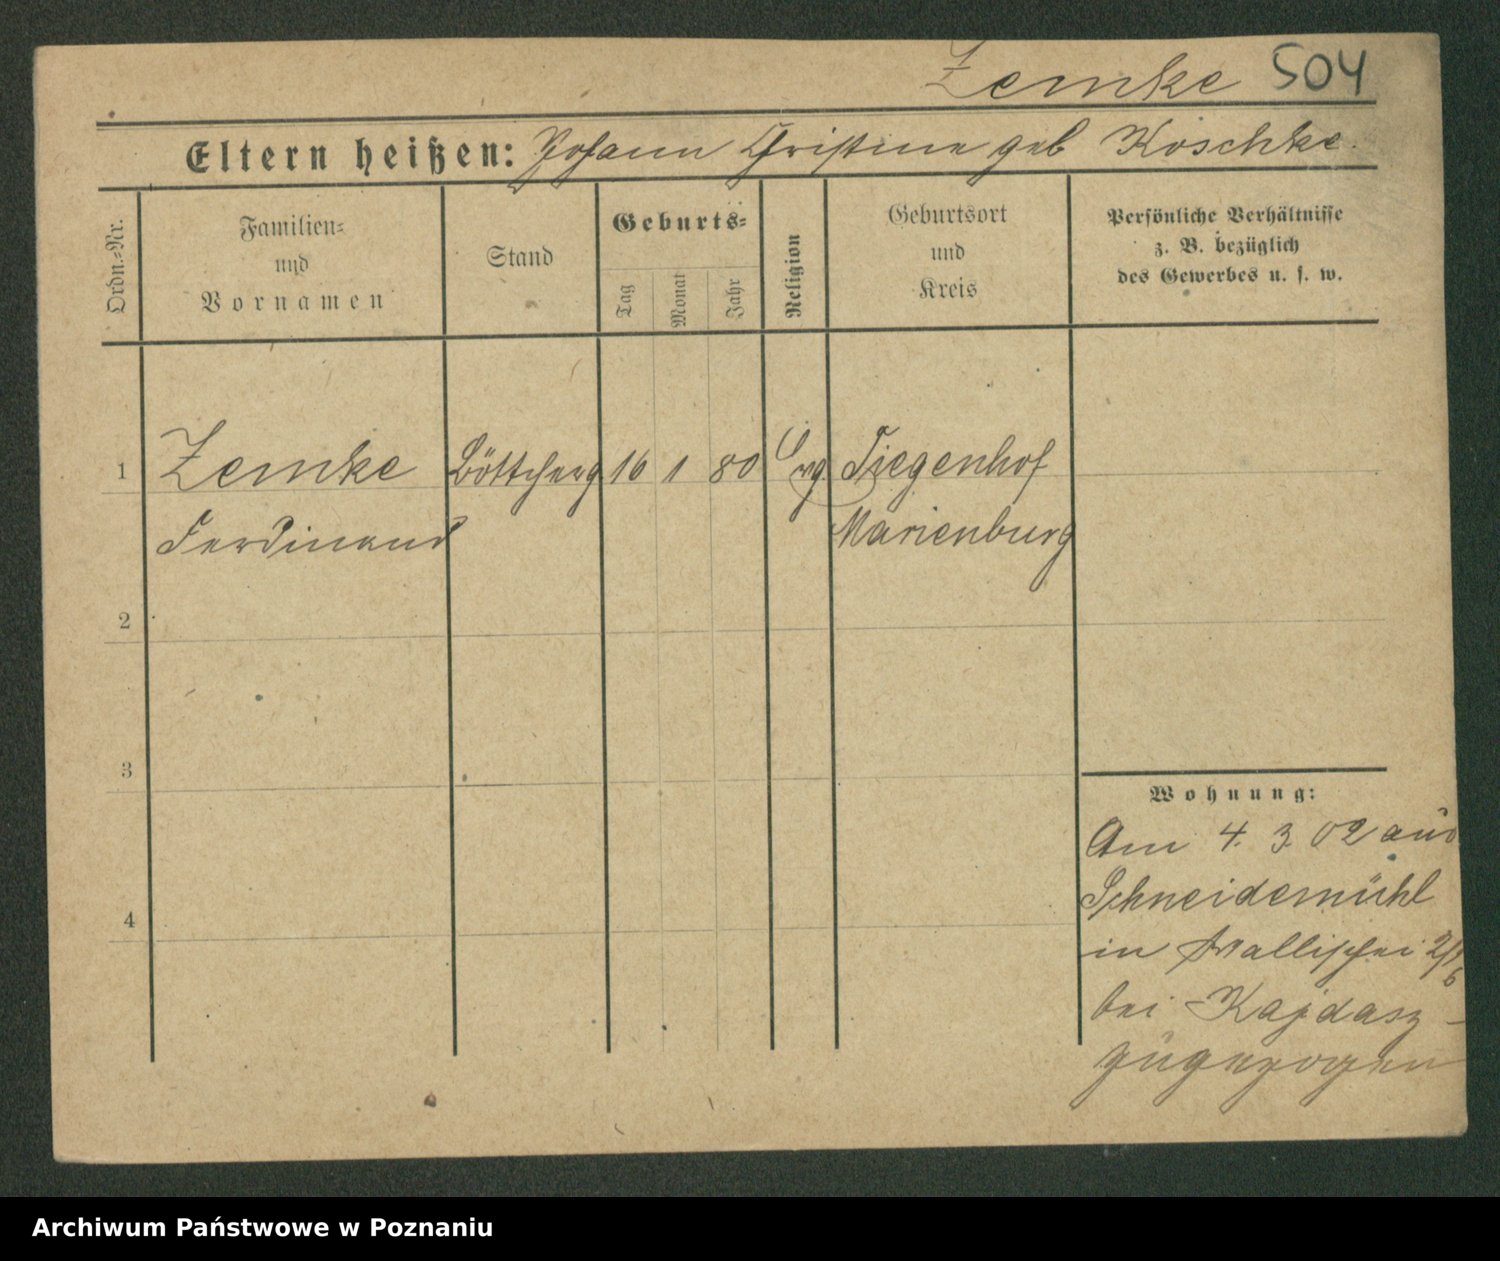 Zemke 504
Eltern heißen: Johann Christine geb Koschke.
Ordn.=Nr.
Familien=
und
Vornamen
Stand
Geburts=
Tag
Monat
Jahr
Religion
Geburtsort
und
Kreis
Persönliche Verhältnisse
z. B. bezüglich
des Gewerbes u. s. w.
1 Zemke Böttcherg 16 1 80 Evg Tiegenhof
Ferdinand Marienburg
2
3
4
Wohnung:
Am 4. 3. 02 aus
Schneidemühl
in Wallischei
bei Kajdasz
zugezogen
Archiwum Państwowe w Poznaniu